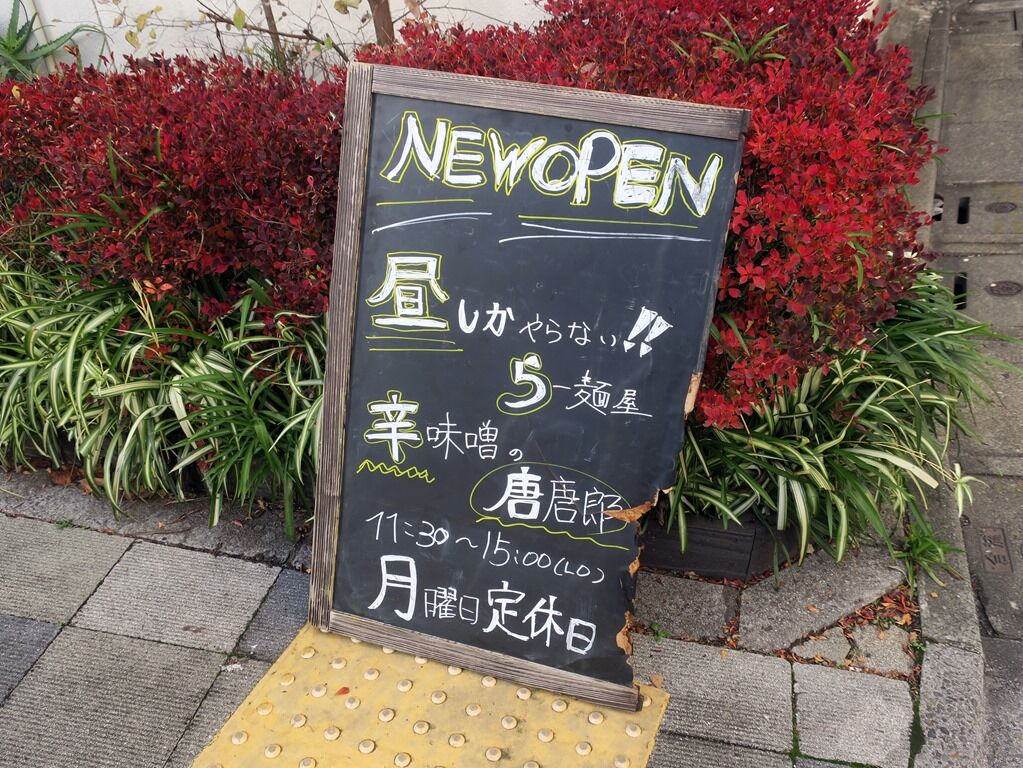 NEW OPEN
昼しかやらない!!
らー麺屋
辛味噌の
唐唐郎
11:30～15:00(LO)
月曜日定休日